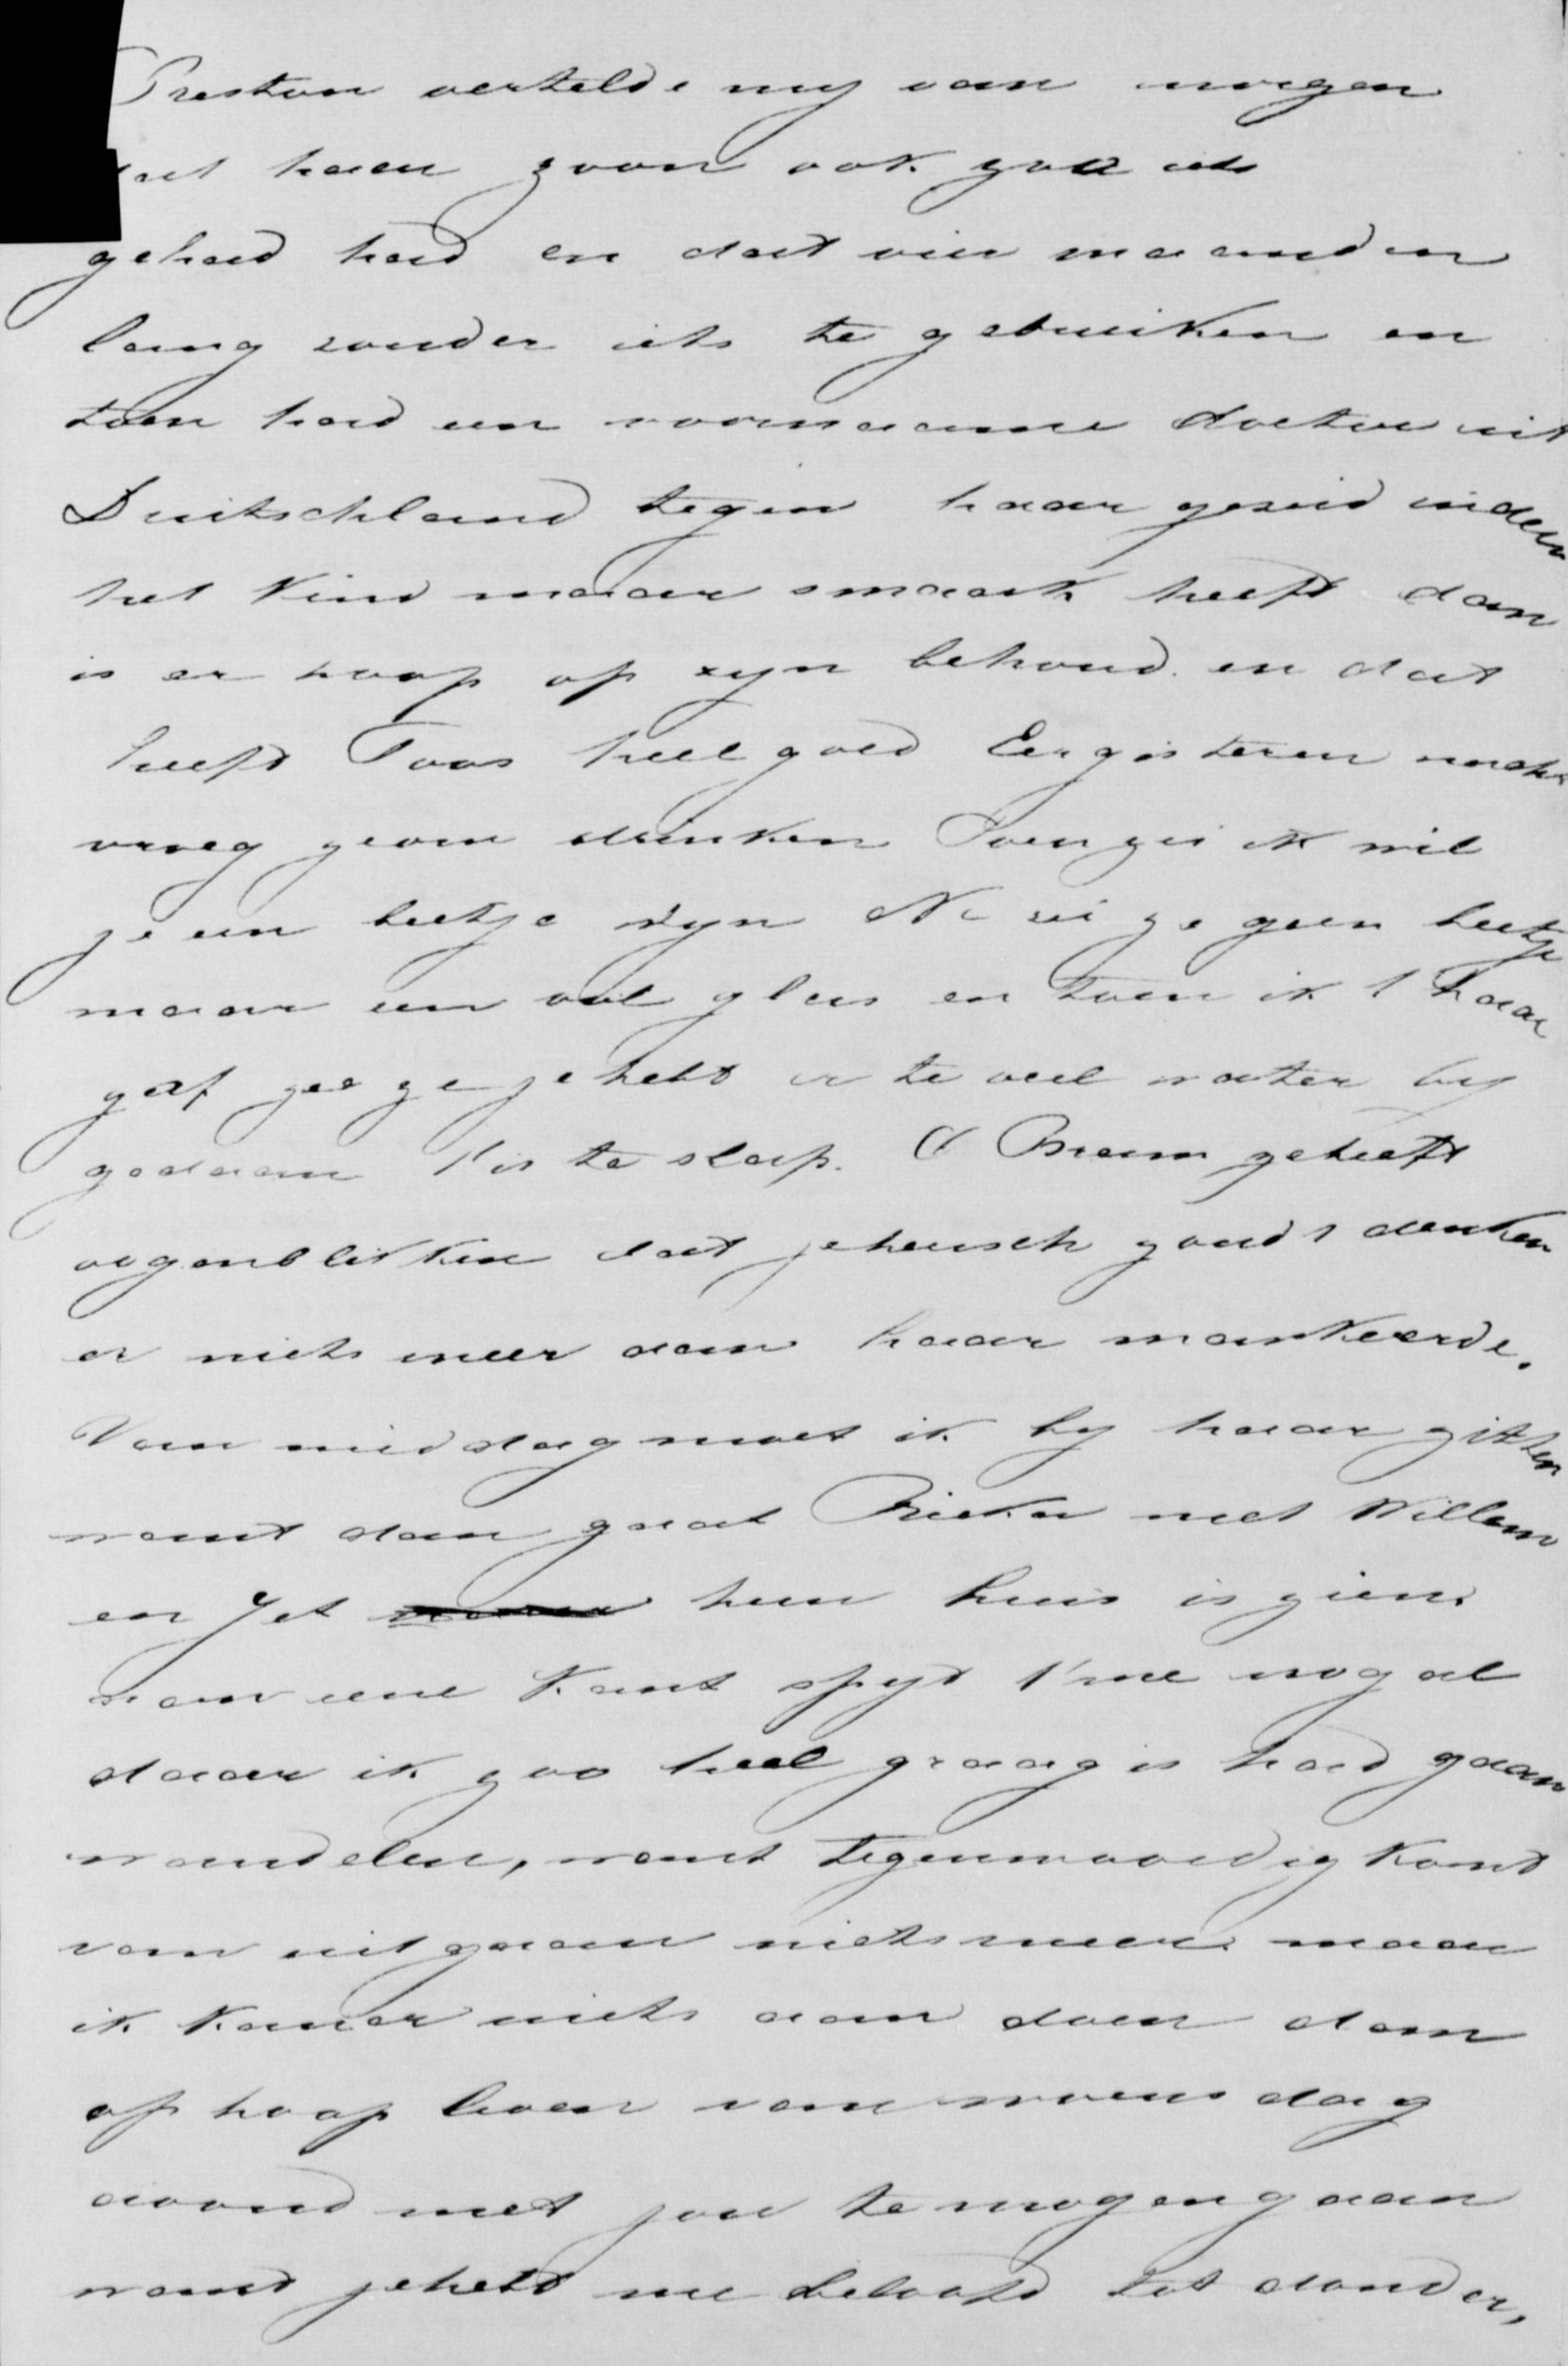 Preston vertelde my van morgen
dat haar zoon ook zoo iets
gehad had en dat vier maanden
lang zonder iets te gebruiken en
toen had een voornaame doctor uit
Duitschland tegen haar gezeid indien
het kind maar smaak heeft dan
is er hoop op zyn behoud. en dat
heeft Toos heel goed Eergisteren nacht
vroeg ze om drinken Toen zei ik wil
je een beetje wyn Ne zei ze geen beetje
maar een vol glas en toen ik 't haar
gaf zei ze je hebt er te veel water by
gedaan 't is te slap. O Bram ze heeft
oogenblikken dat je heusch zoud 't denken
er niets meer aan haar mankeerde.
Van middag moet ik by haar zitten
want dan gaat Rieka met Willem
en Jet hun huis is zien.
van eene kant spyt 't me nog al
daar ik zoo heel graag is had gaan
wandelen, want tegenwoordig komt
van uitgaan niets meer maar
ik kan er niets aan doen dan
op hoop leven van woensdag
avond met jou te mogen gaan
want je hebt me beloofd tot donder,